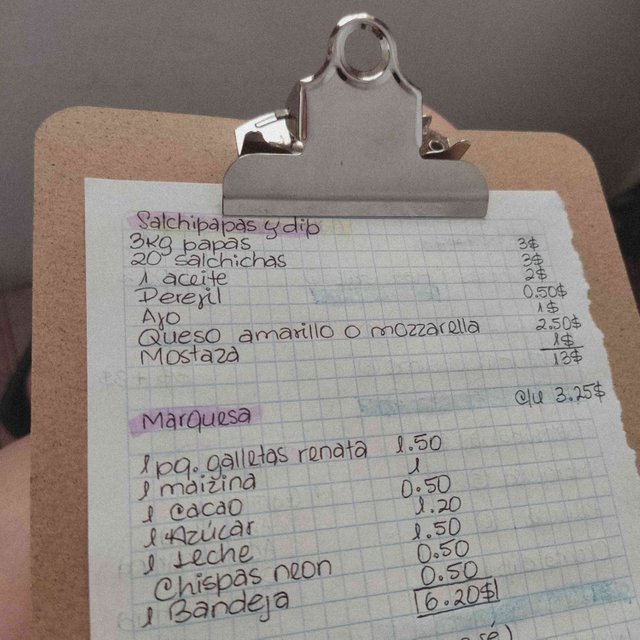 Salchipapas y dip
3kg papas 3$
20 salchichas 3$
1 aceite 2$
Perejil 0.50$
Ajo 1$
Queso amarillo o mozzarella 2.50$
Mostaza 1$
13$
c/u 3.25$
Marquesa
1 pq. galletas renata 1.50
1 maizina 1
1 cacao 0.50
1 Azúcar 1.20
1 Leche 1.50
Chispas neon 0.50
1 Bandeja 0.50
6.20$